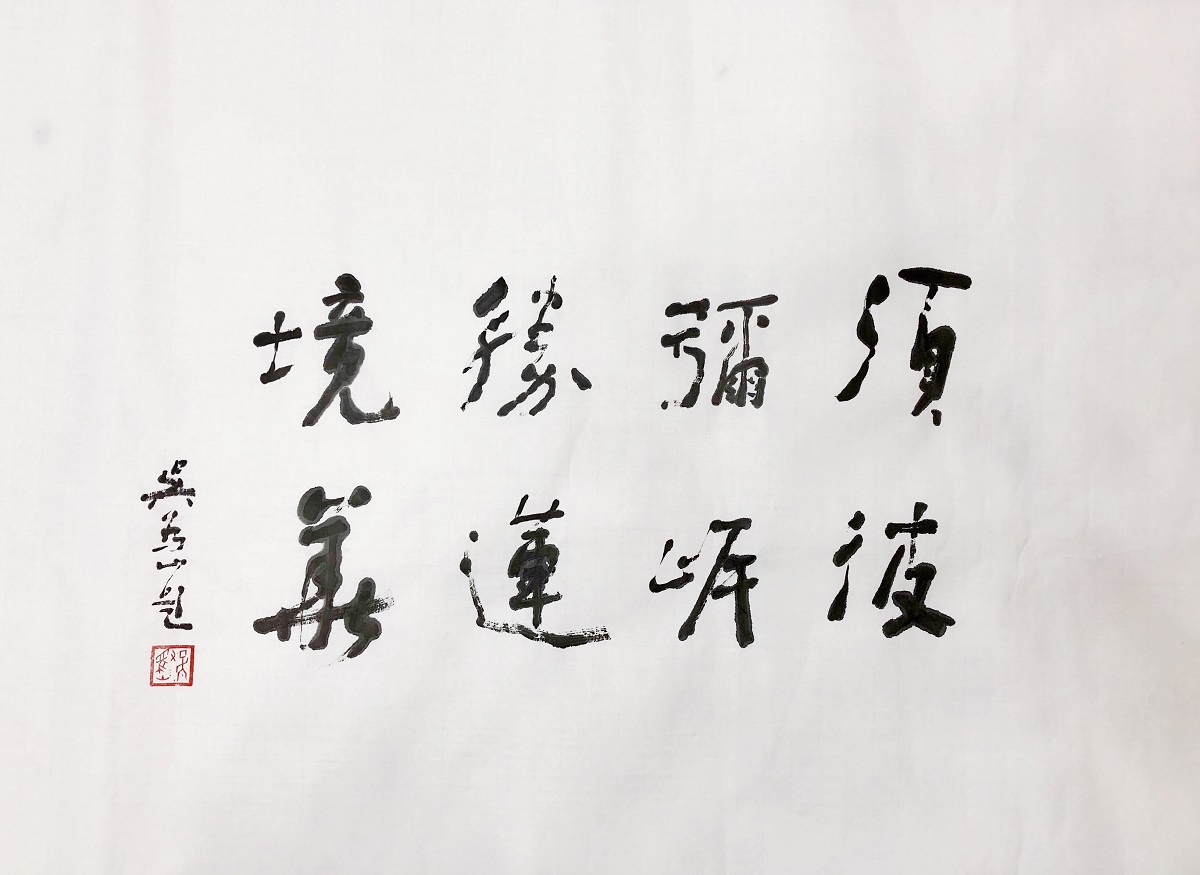 須彌勝境
彼岸蓮華
吳為山題